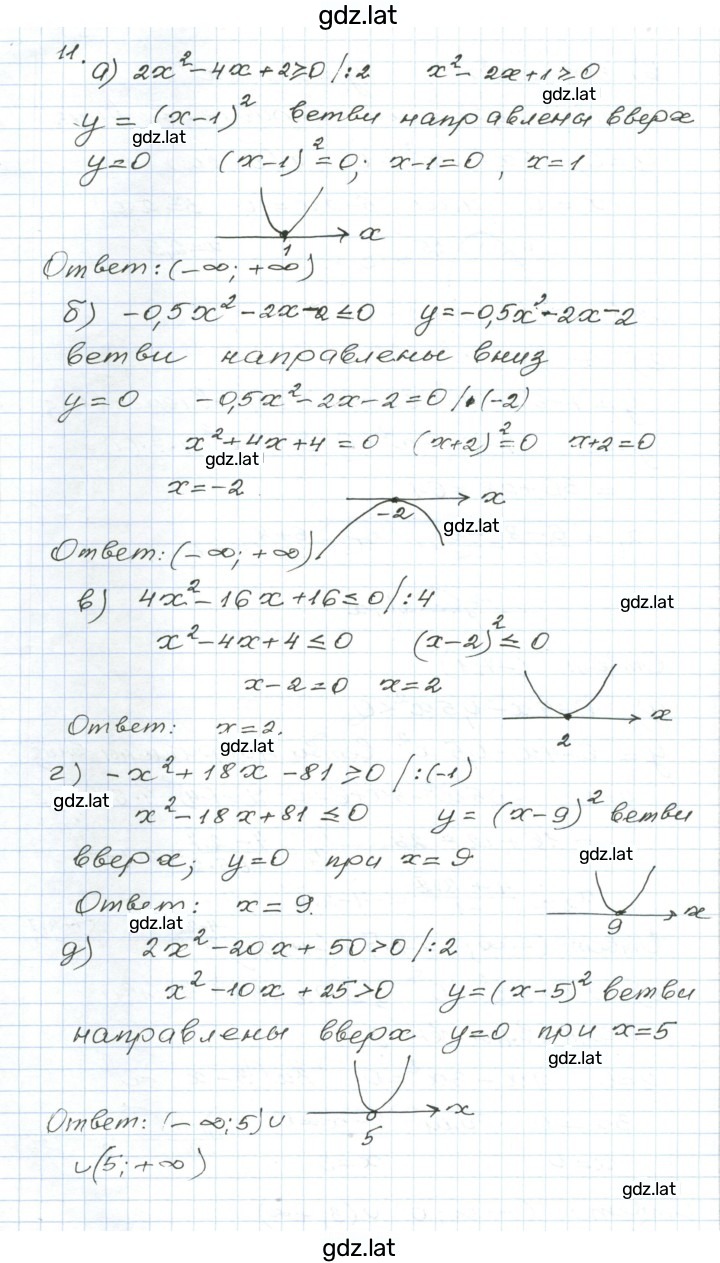 gdz.lat
11. а) 2x² - 4x + 2 ≥ 0 /:2 x² - 2x + 1 ≥ 0
gdz.lat
y = (x-1)² ветви направлены вверх
gdz.lat
y=0 (x-1)² = 0; x-1=0, x=1
x
1
Ответ: (-∞; +∞)
б) -0,5x² - 2x - 2 ≤ 0 y = -0,5x² - 2x - 2
ветви направлены вниз
y=0 -0,5x² - 2x - 2 = 0 /•(-2)
x² + 4x + 4 = 0 (x+2)² = 0 x+2=0
gdz.lat
x = -2 x
-2 gdz.lat
Ответ: (-∞; +∞)
в) 4x² - 16x + 16 ≤ 0 /:4
gdz.lat
x² - 4x + 4 ≤ 0 (x-2)² ≤ 0
x-2=0 x=2
Ответ: x=2. x
gdz.lat 2
г) -x² + 18x - 81 ≥ 0 /:(-1)
gdz.lat
x² - 18x + 81 ≤ 0 y = (x-9)² ветви
вверх; y=0 при x=9
gdz.lat
Ответ: x=9. x
gdz.lat 9
д) 2x² - 20x + 50 > 0 /:2
x² - 10x + 25 > 0 y = (x-5)² ветви
направлены вверх y=0 при x=5
gdz.lat
Ответ: (-∞; 5) ∪ x
5
∪ (5; +∞)
gdz.lat
gdz.lat